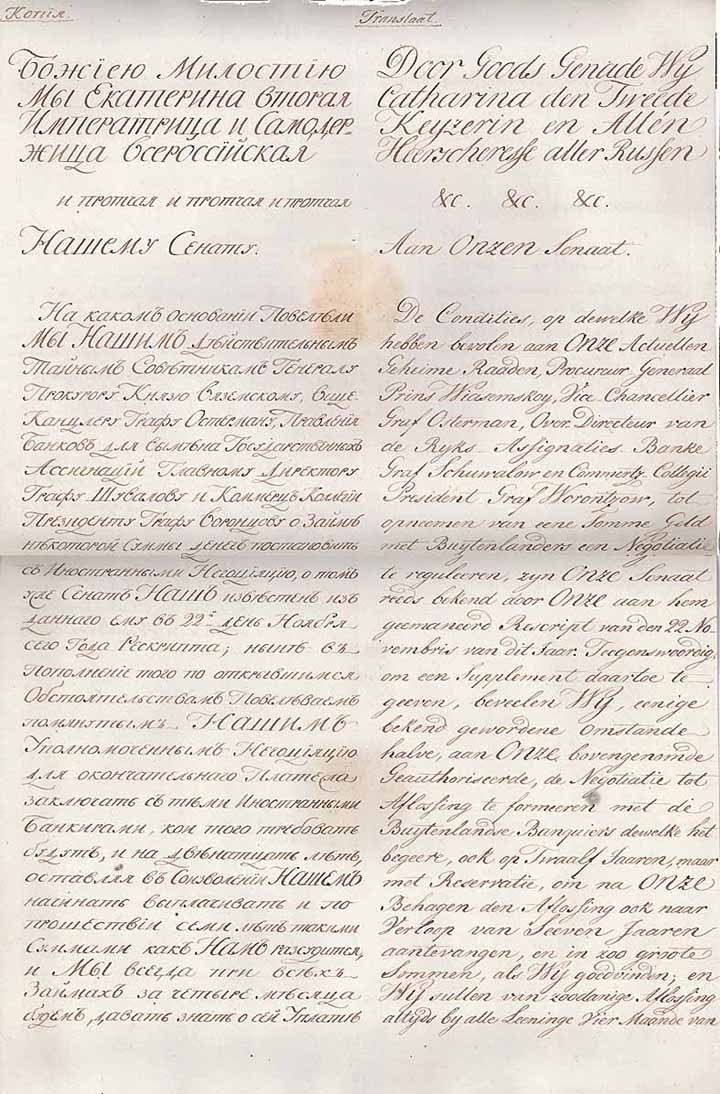 Копїя.
Божїею Милостїю
Мы Екатерина вторая
Императрица и Самодер-
жица всероссїйская
и протчая и протчая и протчая
Нашему Сенату.
На какомъ основанїи Повелѣли
Мы Нашимъ дѣйствительнымъ
Тайнымъ Совѣтникамъ Генералу
Прокурору Князю Вяземскому, Вице
Канцлеру Графу Остерману, Правленїя
Банковъ для вымѣна Государственныхъ
Ассигнацїй Главному Директору
Графу Шувалову и Коммерцъ Коллегїи
Президенту Графу Воронцову о Займѣ
нѣкоторой суммы денегъ постановить
съ Иностранными Негоцїяцїю, о томъ
уже Сенатъ Нашъ извѣстенъ изъ
даннаго ему въ 22й день Ноября
сего Года Рескрипта; нынѣ въ
пополненїе того по открывшимся
Обстоятельствамъ Повелѣваемъ
помянутымъ Нашимъ
Уполномоченнымъ Негоцїяцїю
для окончательнаго Платежа
заключать съ тѣми Иностранными
Банкирами, кои того требовать
будутъ, и на двѣнатцать лѣтъ,
оставляя въ Соизволенїи Нашемъ
начинать выплачивать и по
прошествїи семи лѣтъ такими
Суммами какъ Намъ разсудится,
и Мы всегда при всѣхъ
Займахъ за четыре мѣсяца
будемъ давать знать о сей Уплатѣ
Translaat.
Door Goods Genade Wy
Catharina den Tweede
Keyzerin en Allén
Heerscheresse aller Russen
&c. &c. &c.
Aan Onzen Senaat.
De Condities, op dewelke Wy
hebben bevolen aan Onze Actuellen
Geheime Raaden, Procureur Generaal
Prins Wiasemskoy, Vice-Chancellier
Graf Osterman, Over Directeur van
de Ryks-Assignaties-Banke
Graf Schuwalow en Commertz-Collegii
President Graf Worontzow, tot
opneemen van eene Somme Geld
met Buytenlanders een Negotiatie
te reguleeren, zyn Onze Senaat
reeds bekend door Onze aan hem
gemaneerd Rescript van den 22 No-
vembris van dit Jaar. Teegenswoordig,
om een Supplement daartoe te
geeven, beveelen Wy, eenige
bekend gewordene omstande
halve, aan Onze bovengenoemde
Geauthoriseerde, de Negotiatie tot
Aflossing te formeeren met de
Buytenlandse Banquiers dewelke het
begeere, ook op Twaalf Jaaren, maar
met Reservatie, om na Onze
Behagen den Aflossing ook naar
Verloop van Seeven Jaaren
aantevangen, en in zoo groote
Sommen, als Wy goedvinden; en
Wy sullen van zoodanige Aflossing
altyds by alle Leeninge Vier Maande van